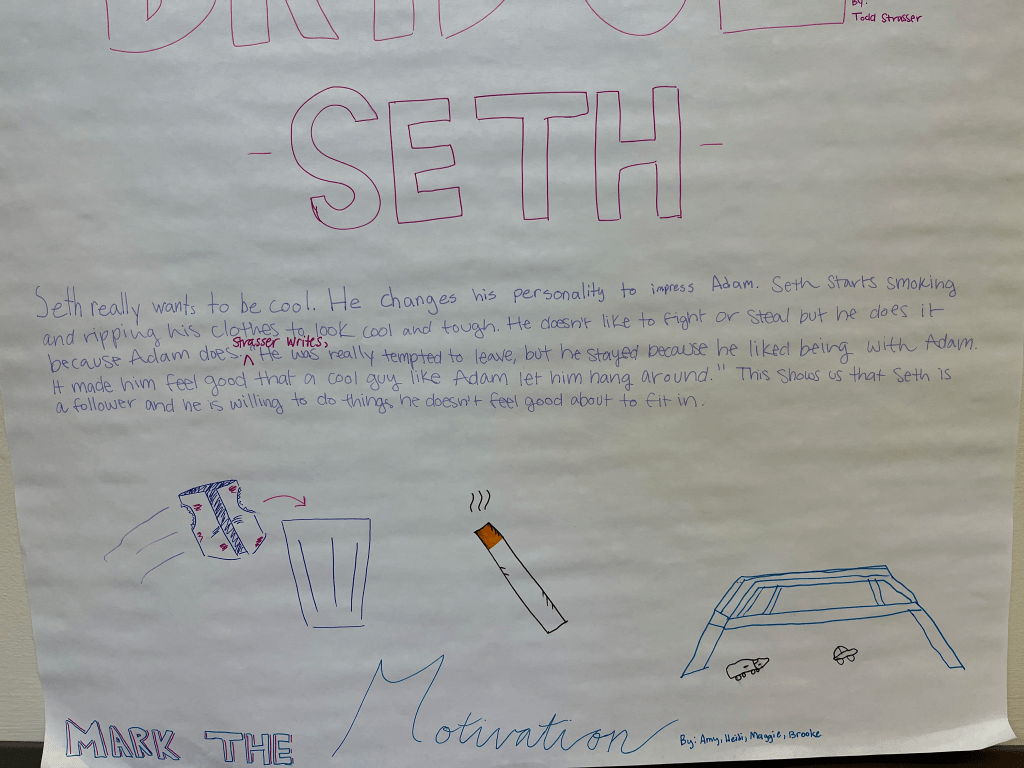 BRIDGE
By:
Todd Strasser
- SETH -
Seth really wants to be cool. He changes his personality to impress Adam. Seth starts smoking
and ripping his clothes to look cool and tough. He doesn't like to fight or steal but he does it
Strasser writes,
because Adam does. ^ "He was really tempted to leave, but he stayed because he liked being with Adam.
It made him feel good that a cool guy like Adam let him hang around." This shows us that Seth is
a follower and he is willing to do things he doesn't feel good about to fit in.
MARK THE Motivation
By: Amy, Heibi, Maggie, Brooke